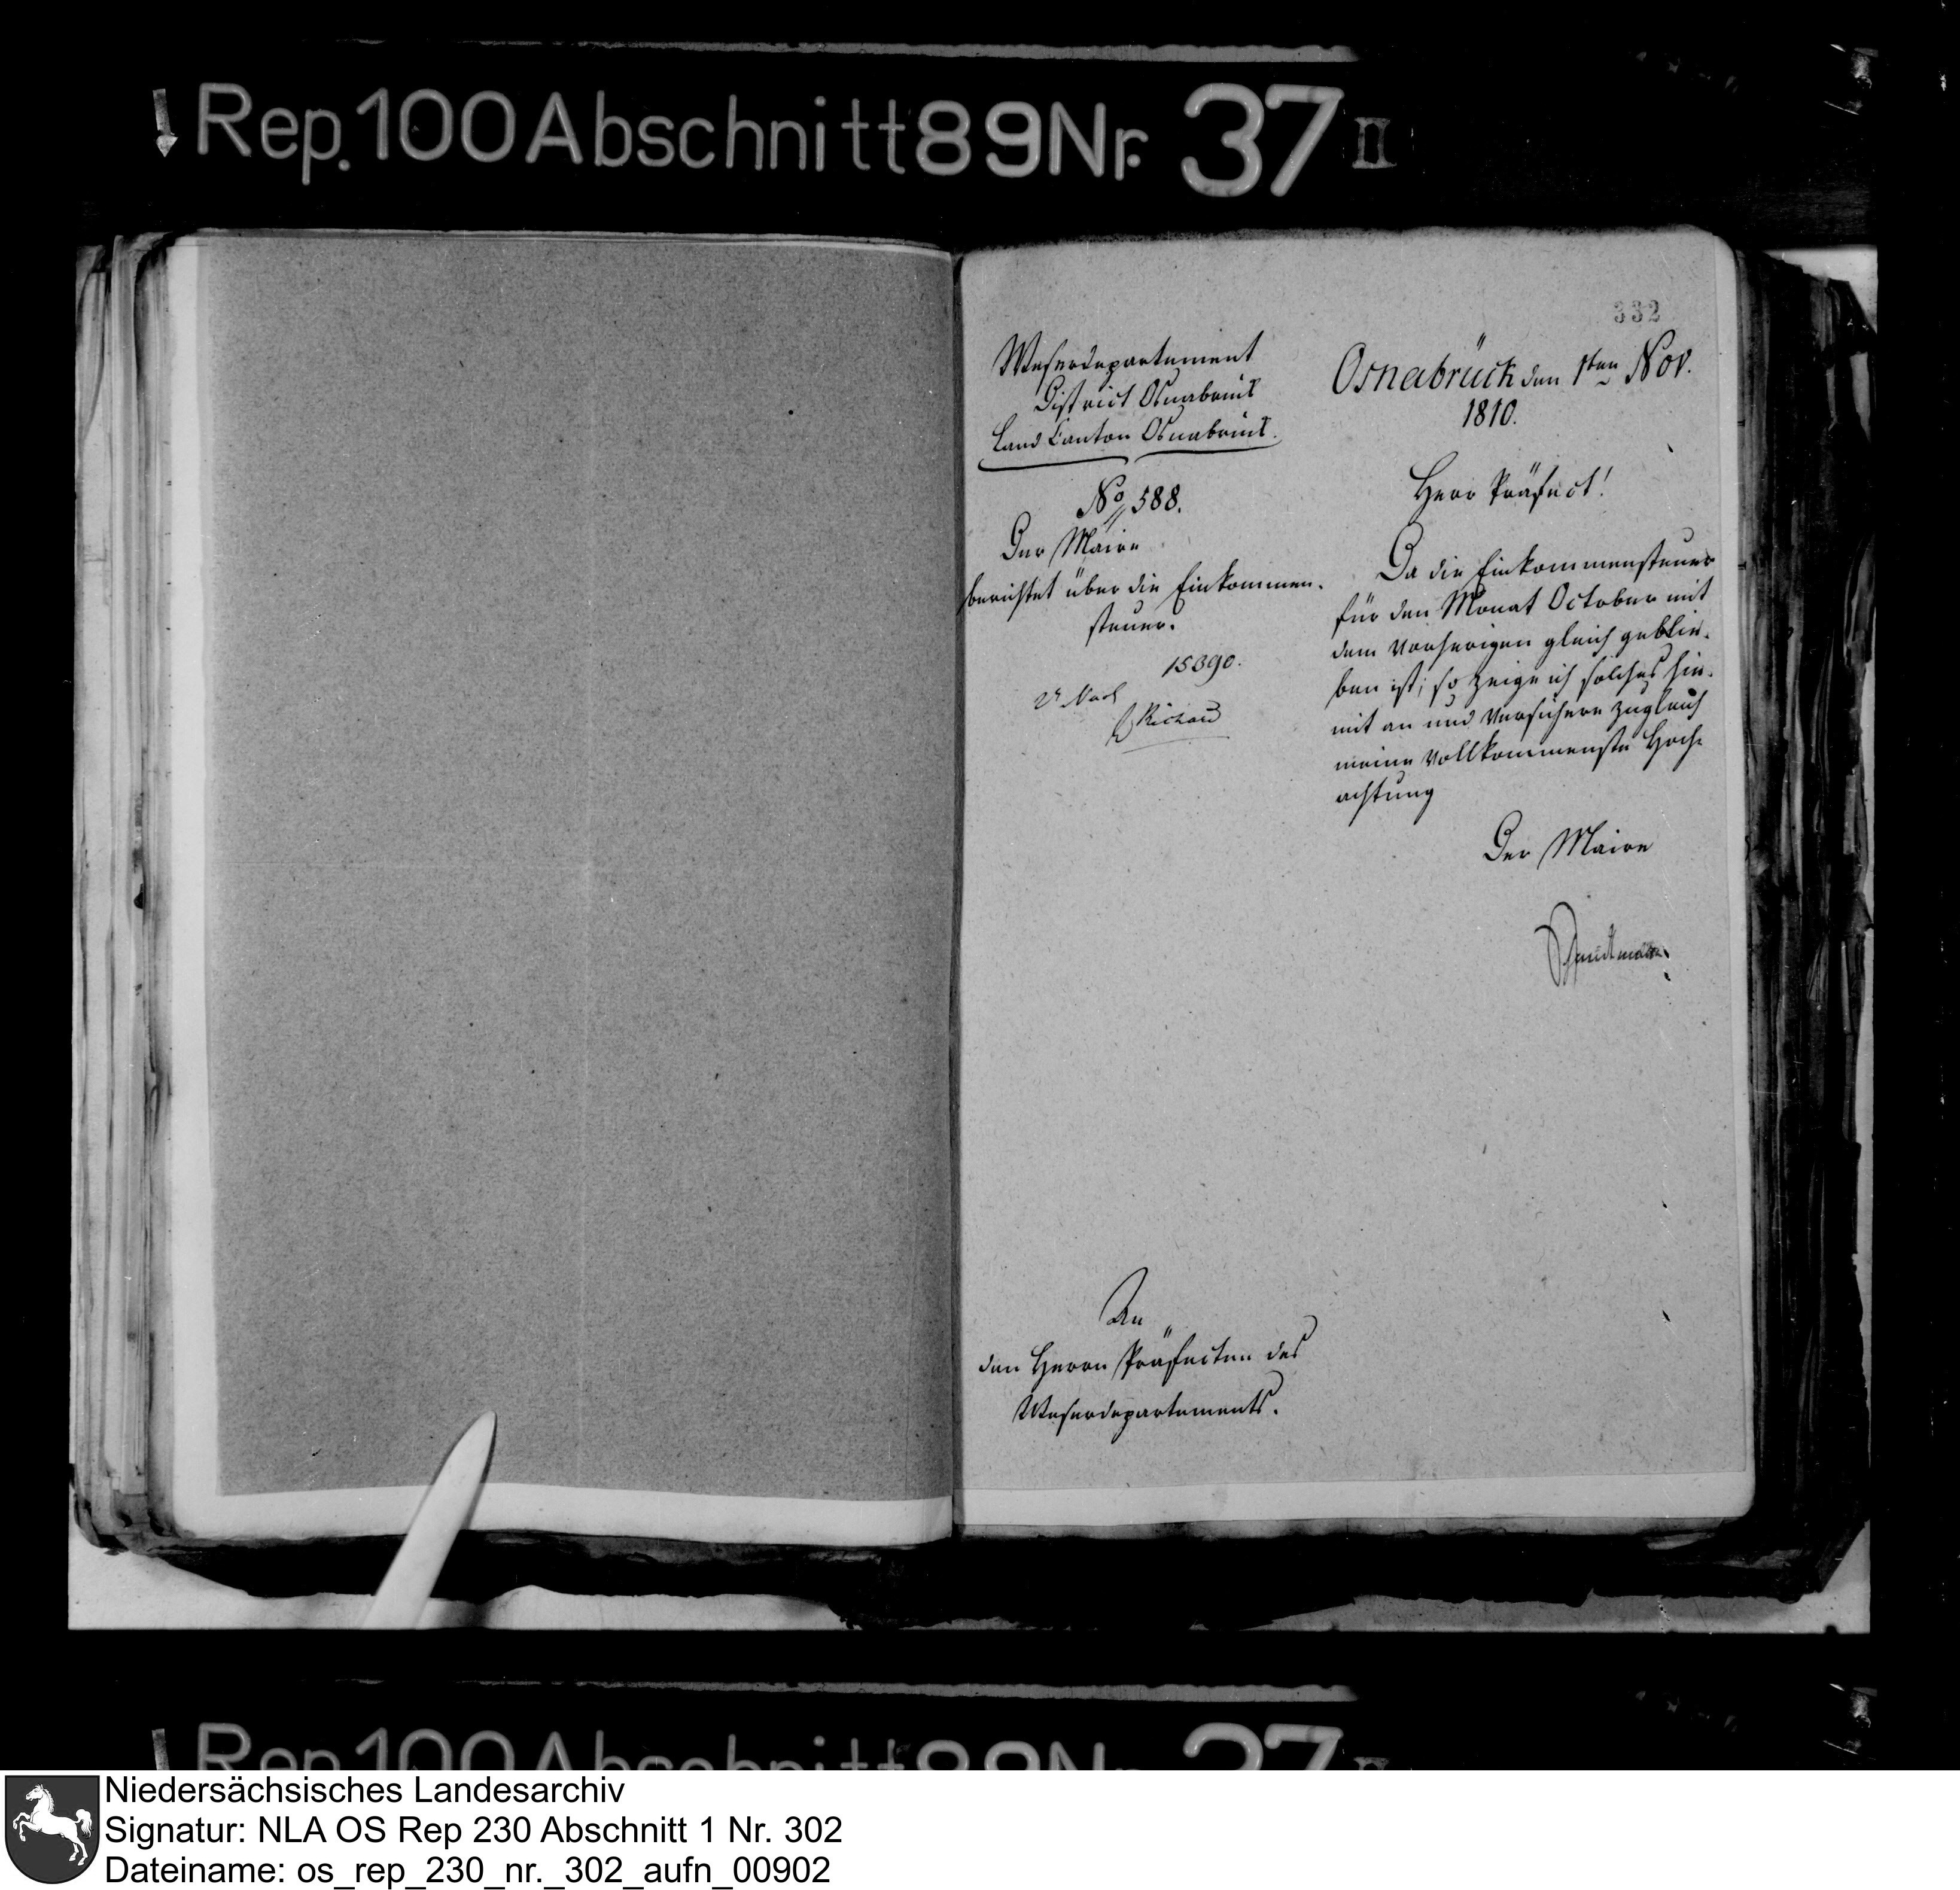 Rep. 100 Abschnitt 89 Nr. 37 II
332
Weserdepartement
District Osnabrück
Land Canton Osnabrück.
No 588.
Der Maire
berichtet über die Einkommen-
steuer.
15390.
Richard
Osnabrück den 1ten Nov.
1810.
Herr Präfect!
Da die Einkommensteuer
für den Monat October mit
dem vorherigen gleich geblie-
ben ist; so zeige ich solches hie-
mit an und versichere zugleich
meine vollkommenste Hoch-
achtung
Der Maire
An
den Herrn Präfecten des
Weserdepartements.
Rep. 100 Abschnitt 89 Nr. 37 II
Niedersächsisches Landesarchiv
Signatur: NLA OS Rep 230 Abschnitt 1 Nr. 302
Dateiname: os_rep_230_nr._302_aufn_00902